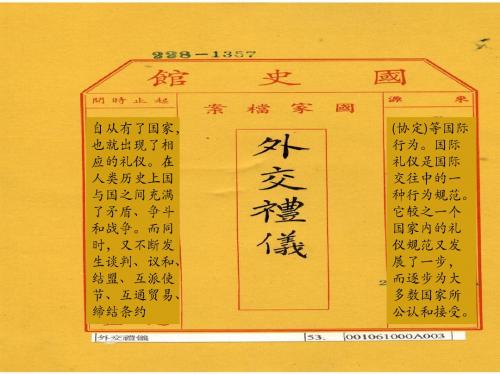 228-1357
館史國
間時止起
案檔家國
源來
自从有了国家，
也就出现了相
应的礼仪。在
人类历史上国
与国之间充满
了矛盾、争斗
和战争。而同
时，又不断发
生谈判、议和、
结盟、互派使
节、互通贸易、
缔结条约
外交禮儀
(协定)等国际
行为。国际
礼仪是国际
交往中的一
种行为规范。
它较之一个
国家内的礼
仪规范又发
展了一步，
而逐步为大
多数国家所
公认和接受。
外交禮儀 53. 001061000A003